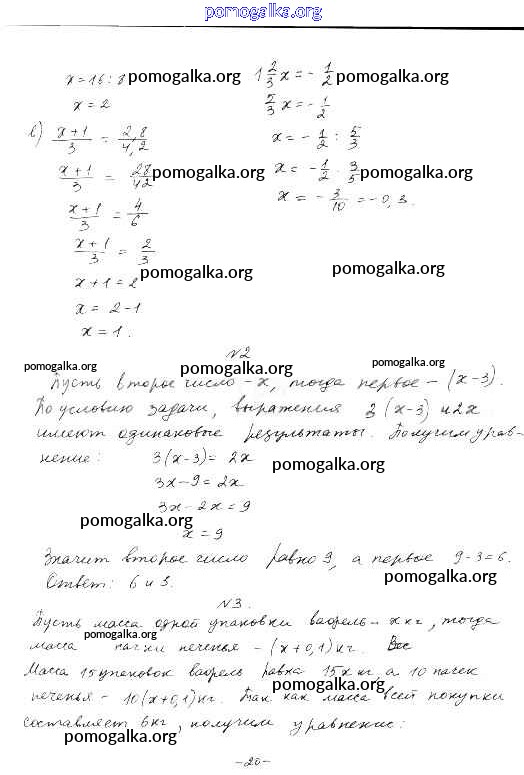 pomogalka.org
x = 16 : 8 pomogalka.org
x = 2
в) (x+1)/3 = 2,8/4,2
(x+1)/3 = 28/42 pomogalka.org
(x+1)/3 = 4/6
(x+1)/3 = 2/3
x + 1 = 2 pomogalka.org
x = 2 - 1
x = 1.
1 2/3 x = - 1/2 pomogalka.org
5/3 x = - 1/2
x = - 1/2 : 5/3
x = - 1/2 · 3/5 pomogalka.org
x = - 3/10 = -0,3.
pomogalka.org
№2
pomogalka.org pomogalka.org pomogalka.org
Пусть второе число - x, тогда первое - (x-3).
По условию задачи, выражения 3(x-3) и 2x
имеют одинаковые результаты. Получим урав-
нение: 3(x-3) = 2x pomogalka.org
3x - 9 = 2x
3x - 2x = 9
pomogalka.org
x = 9
Значит второе число равно 9, а первое 9-3=6.
pomogalka.org
Ответ: 6 и 3.
№3.
Пусть масса одной упаковки вафель - x кг, тогда
pomogalka.org
масса пачки печенья - (x+0,1) кг. Вес
Масса 15 упаковок вафель равна 15x кг, а 10 пачек
pomogalka.org
печенья - 10(x+0,1) кг. Так как масса всей покупки
составляет 6 кг, получим уравнение:
pomogalka.org
-20-